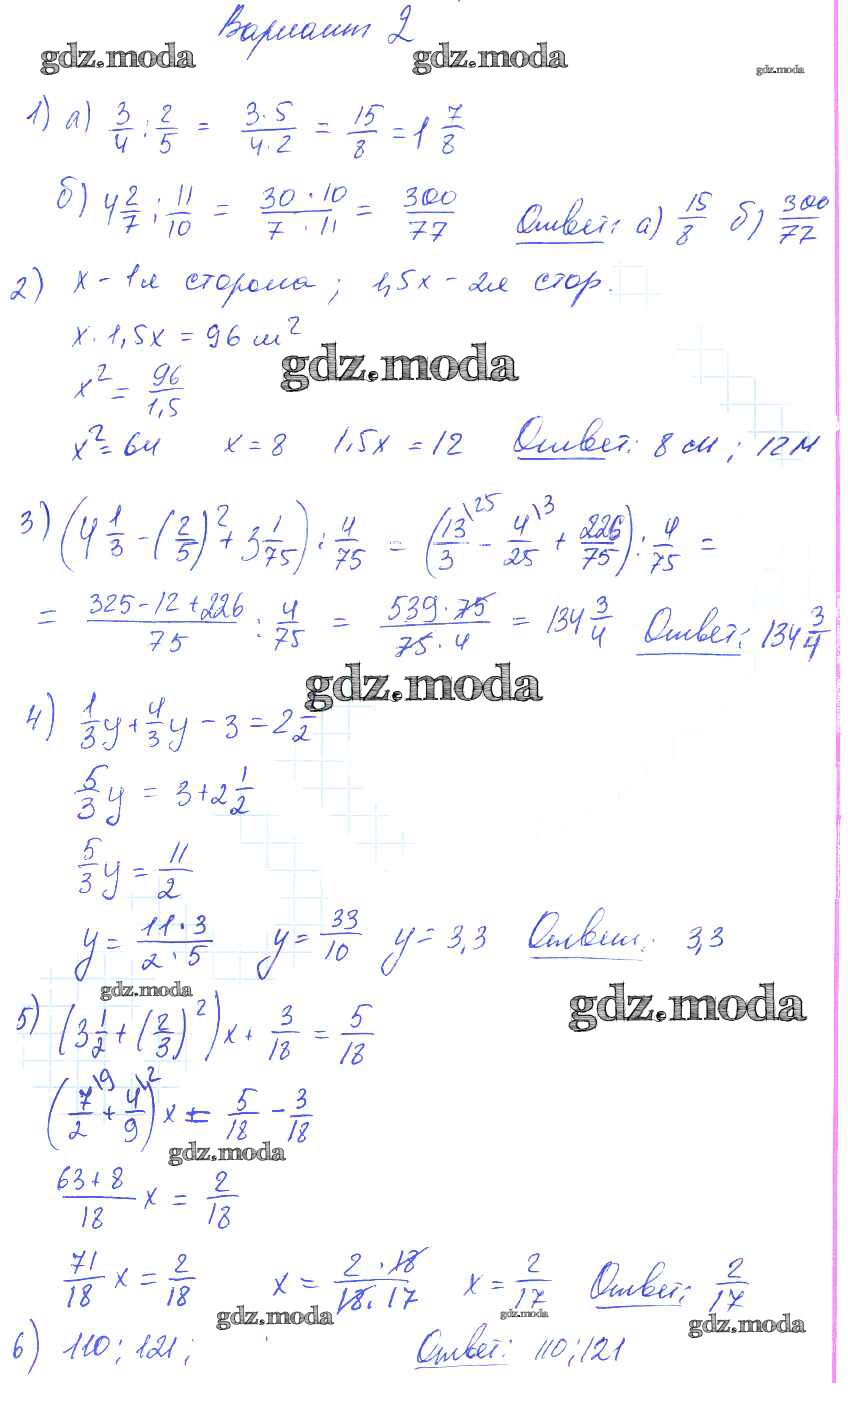 Вариант 2
gdz.moda gdz.moda gdz.moda
1) а) 3/4 : 2/5 = 3·5/4·2 = 15/8 = 1 7/8
б) 4 2/7 : 11/10 = 30·10/7·11 = 300/77 Ответ: а) 15/8 б) 300/77
2) x - 1я сторона; 1,5x - 2я стор.
x·1,5x = 96 м²
gdz.moda
x² = 96/1,5
x² = 64 x = 8 1,5x = 12 Ответ: 8 см; 12 м
3) (4 1/3 - (2/5)² + 3 1/75) : 4/75 = (13/3 \25 - 4/25 \3 + 226/75) : 4/75 =
= 325-12+226/75 : 4/75 = 539·75/75·4 = 134 3/4 Ответ: 134 3/4
gdz.moda
4) 1/3 y + 4/3 y - 3 = 2 1/2
5/3 y = 3 + 2 1/2
5/3 y = 11/2
y = 11·3/2·5 y = 33/10 y = 3,3 Ответ: 3,3
gdz.moda gdz.moda
5) (3 1/2 + (2/3)²) x + 3/18 = 5/18
(7/2 \9 + 4/9 \2) x = 5/18 - 3/18
gdz.moda
63+8/18 x = 2/18
71/18 x = 2/18 x = 2·18/18·17 x = 2/17 Ответ: 2/17
gdz.moda gdz.moda gdz.moda
6) 110; 121; Ответ: 110; 121